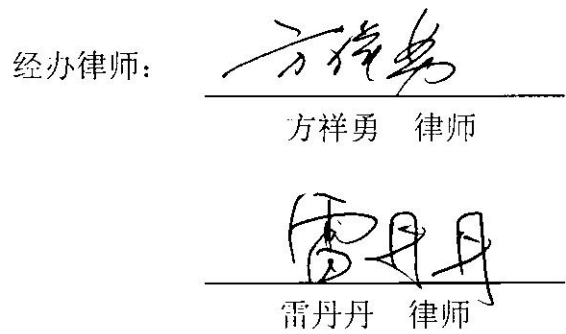 经办律师： 方祥勇
方祥勇 律师
雷丹丹
雷丹丹 律师